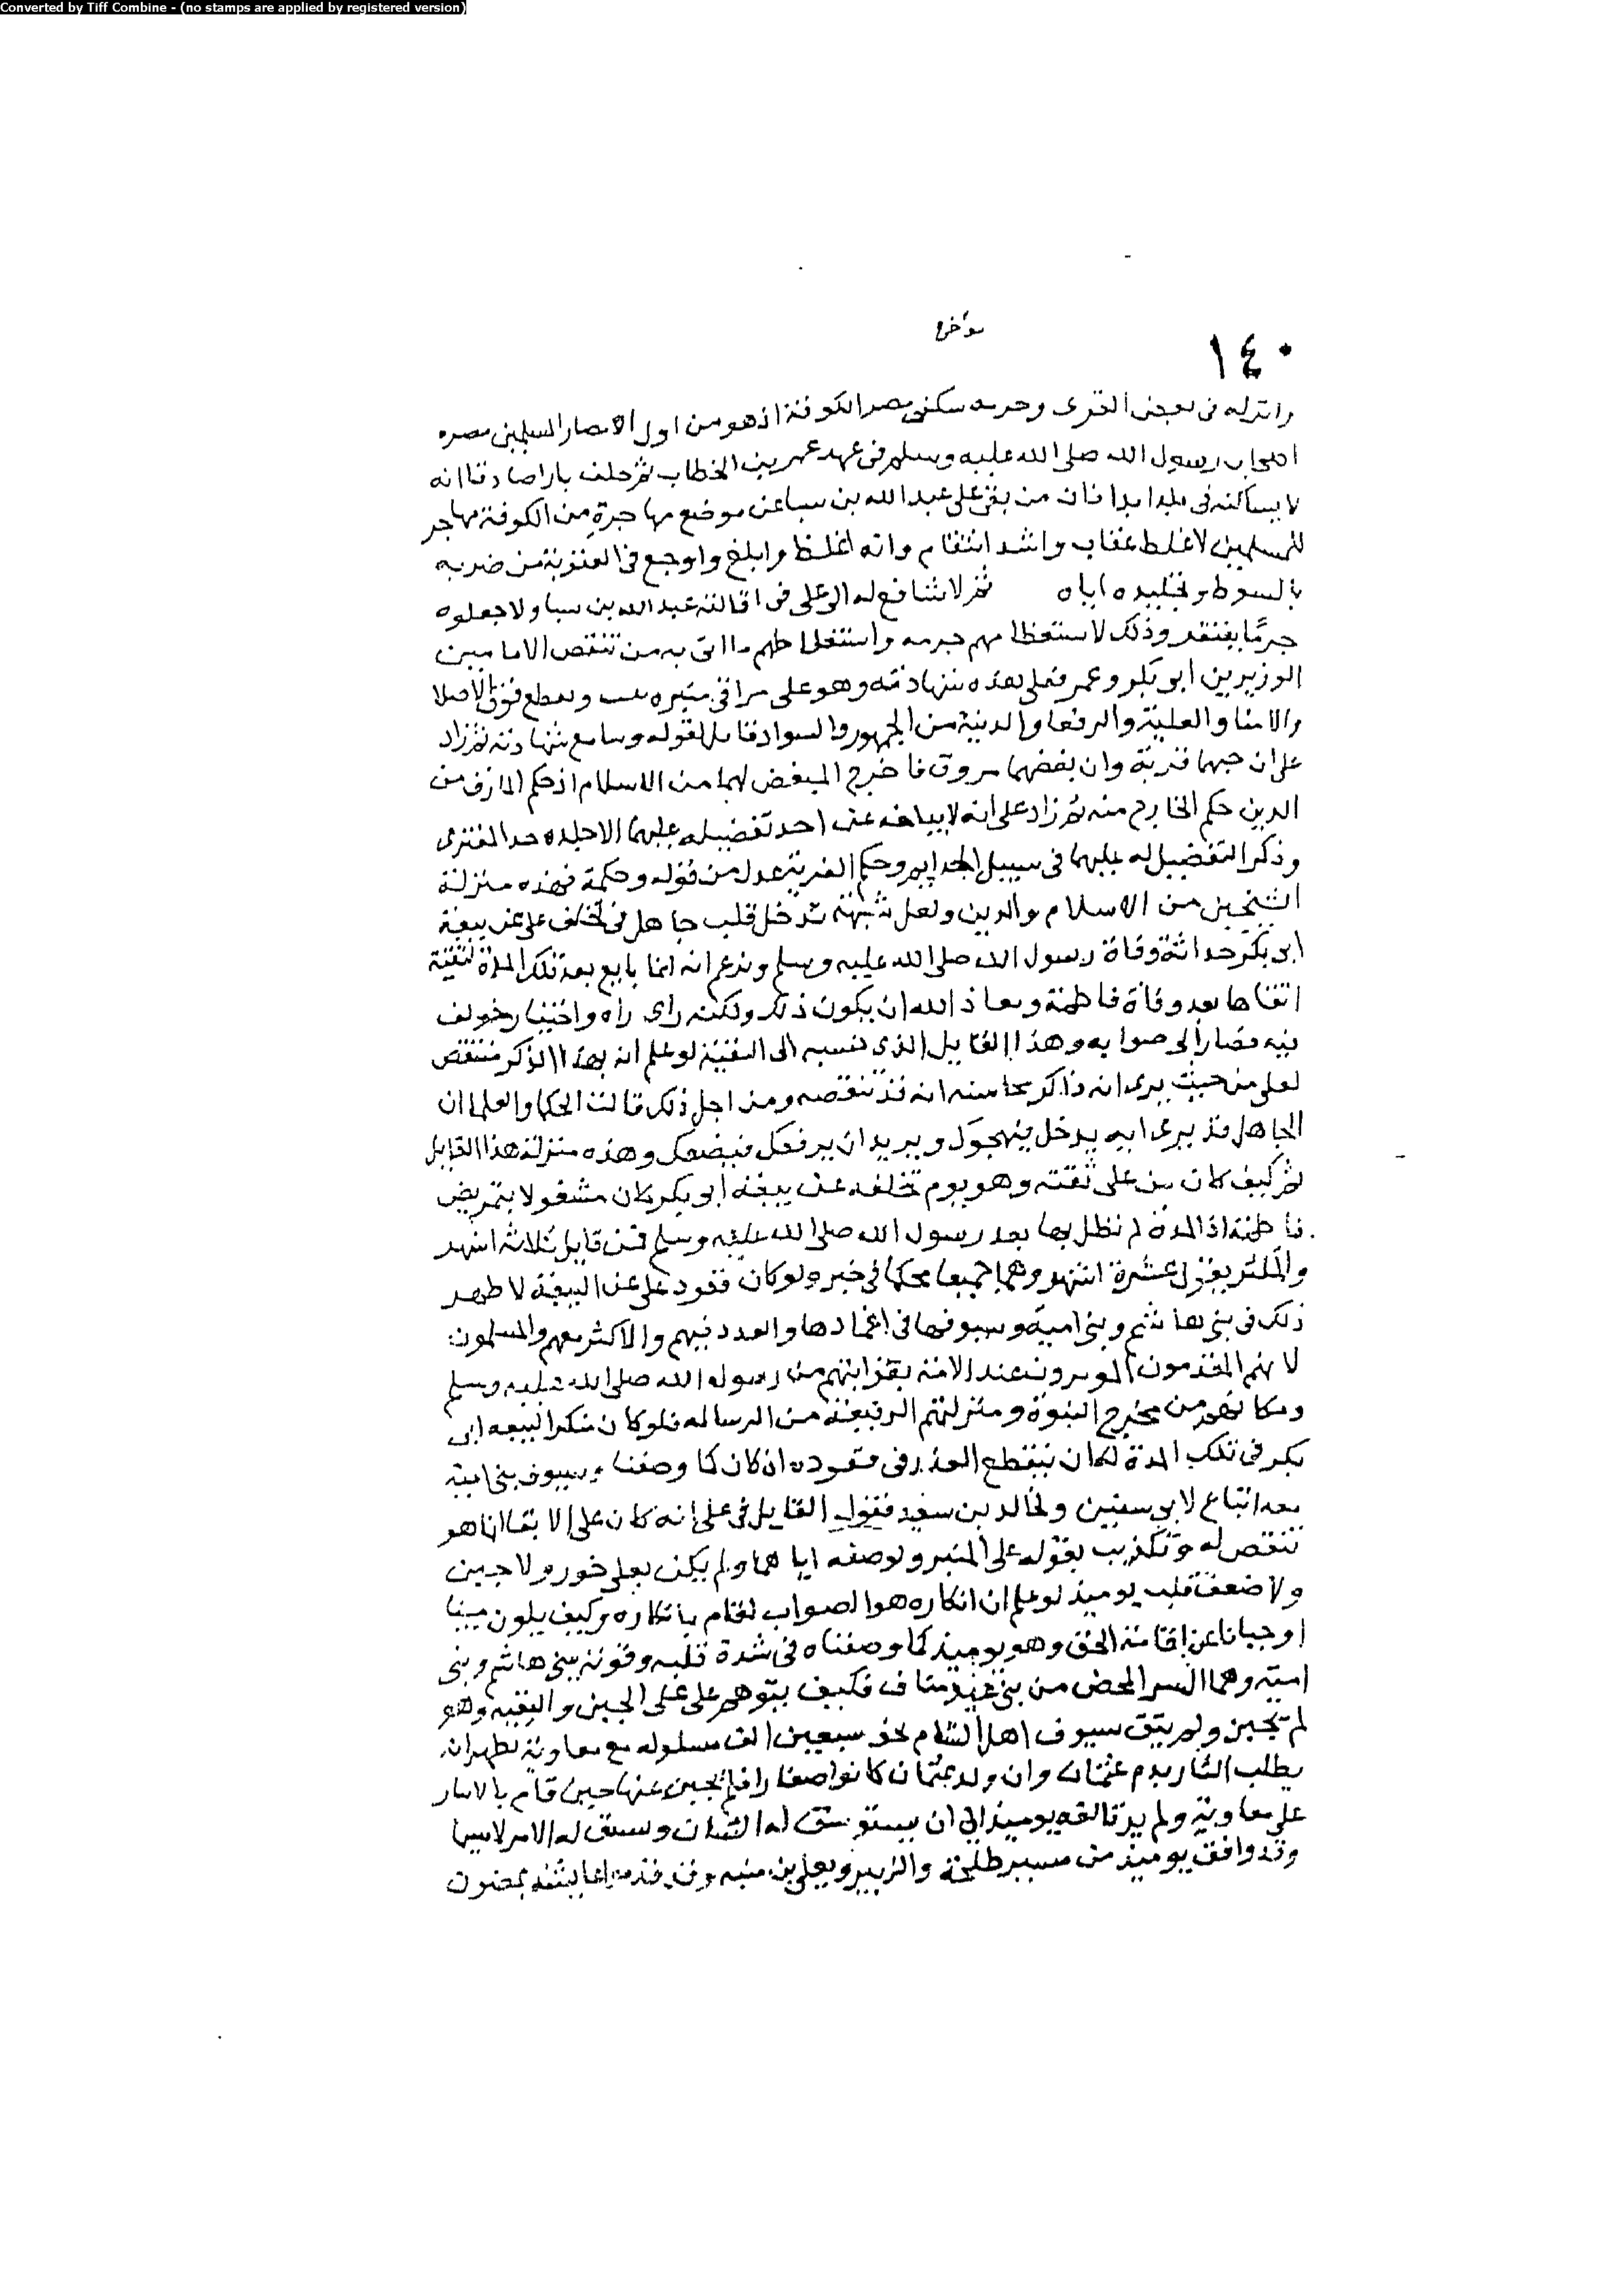 Converted by Tiff Combine - (no stamps are applied by registered version)
١٤٠
وانزله في بعض القرى وحرمه سكنى مصر الكوفة اذ هو من اول الامصار المسلمين مصره
اصحاب رسول الله صلى الله عليه وسلم في عهد عمر بن الخطاب ثم حلف بارا صادقا انه
لا يساكنه في بلد ابدا فان من بغي على عبد الله بن سبا عن موضع مهاجرة من الكوفة مهاجر
للمسلمين لاغلط عقاب واشد انتقام وانه اغلظ وابلغ واوجع في العقوبة من ضربه
بالسوط وتخليده اياه ثم لا شافع له الى على فى اقالته عبد الله بن سبا ولا جعلوه
جرمًا يغتفر وذلك لاستعظامهم جرمه واستغلاظهم ما اتى به من تنقص الامامين
الوزيرين ابو بكر وعمر فعلى بعده شهادته وهو على مراقي منبره
والامنا والعلية والرفعا والدنية من الجمهور والسواد قابل لقوله وسامع شهادته ثم زاد
على ان حبهما قربة وان بغضهما مروق فاخرج المبغض لهما من الاسلام اذ حكم المارق من
الدين حكم الخارج منه ثم زاد على انه لا يبلغه عن احد تفضيله عليهما الا جلده حد المفترى
وذكر التفضيل له عليهما فى سبيل الجدايم وحكم الفرية عدل من قوله وحكمة فهذه منزلة
الشيخين من الاسلام والدين ولعل شبهة تدخل قلب جاهل في تخلف على عن بيعة
ابى بكر حداثة وفاة رسول الله صلى الله عليه وسلم ويزعم انه انما بايع بعد تلك المدة لتقية
اتقاها بعد وفاة فاطمة ومعاذ الله ان يكون ذلك ولكنه راى راه واختيار خولف
فيه فصار الى صوابه وهذا القايل الذى نسبه الى التقية لو علم انه بهذا الذكر منتقص
لعلى من حيث يرى انه ذاكر محاسنه انه قد تنقصه ومن اجل ذلك قالت الحكما والعلما ان
الجاهل قد يرى انه يدخل فيهجوك ويريد ان يرفعك فيضعك وهذه منزلة هذا القايل
ثم كيف كان من على تقته وهو يوم تخلفه عن بيعة ابو بكر كان مشغولا بتمريض
فاطمة اذ المدة لم تطل بها بعد رسول الله صلى الله عليه وسلم فمن قايل ثلاثة اشهر
والمكثر يقول عشرة اشهر وهما جميعا محكما في خبره ولو كان قعود على عن البيعة لا ظهر
ذلك فى بنى هاشم وبنى امية وسيوفها فى اغمادها والعدد فيهم والاكثر معهم والمسلمون
لانهم المقدمون عند الامة بقرابتهم من رسول الله صلى الله عليه وسلم
ومكانهم من مخرج النبوة ومنزلتهم الرفيعة من الرساله فلو كان منكرا لبيعه ابى
بكر فى تلك المدة لكان ينقطع العذر فى قعوده ان كان كما وصفنا وسيوف بنى امية
معه اتباع لابى سفين ولخالد بن سعيد فقول القايل فى على انه كان على الا بقا انما هو
تنقص له وتكذيب لقوله على المنبر ولوصفه اياهما ولم يكن بعلى خور ولا جبن
ولا ضعف قلب يوميذ لو علم ان انكاره هو الصواب لقام بانكاره وكيف يكون
او جبانا عن اقامة الحق وهو يوميذ كما وصفناه فى شدة قلبه وقوته ببنى هاشم وبنى
امية وهما السر المحض من بنى عبد مناف فكيف يتوهم على على الجبن والتقيه وهو
لم يجبن ولم يتق سيوف اهل الشام نحو سبعين الف مسلوله مع معاوية يظهر انه
يطلب الثار بدم عثمان وان ولد عثمان كانوا صغارا فلم يجبن عنها حين قام بالاسار
على معاوية ولم يرتا لقه يوميذ الى ان يستوسق له الشان له الامر لاسيما
وقد وافق يوميذ من مسير طلحة والزبير ويعلى بن منبه